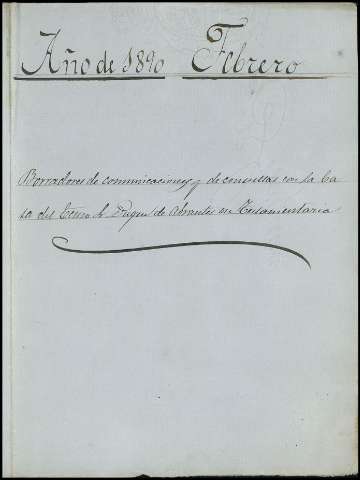 Año de 1890 Febrero
Borradores de comunicaciones y de consultas con la Ca
sa del Excmo S. Duque de Abrantes en Testamentaria